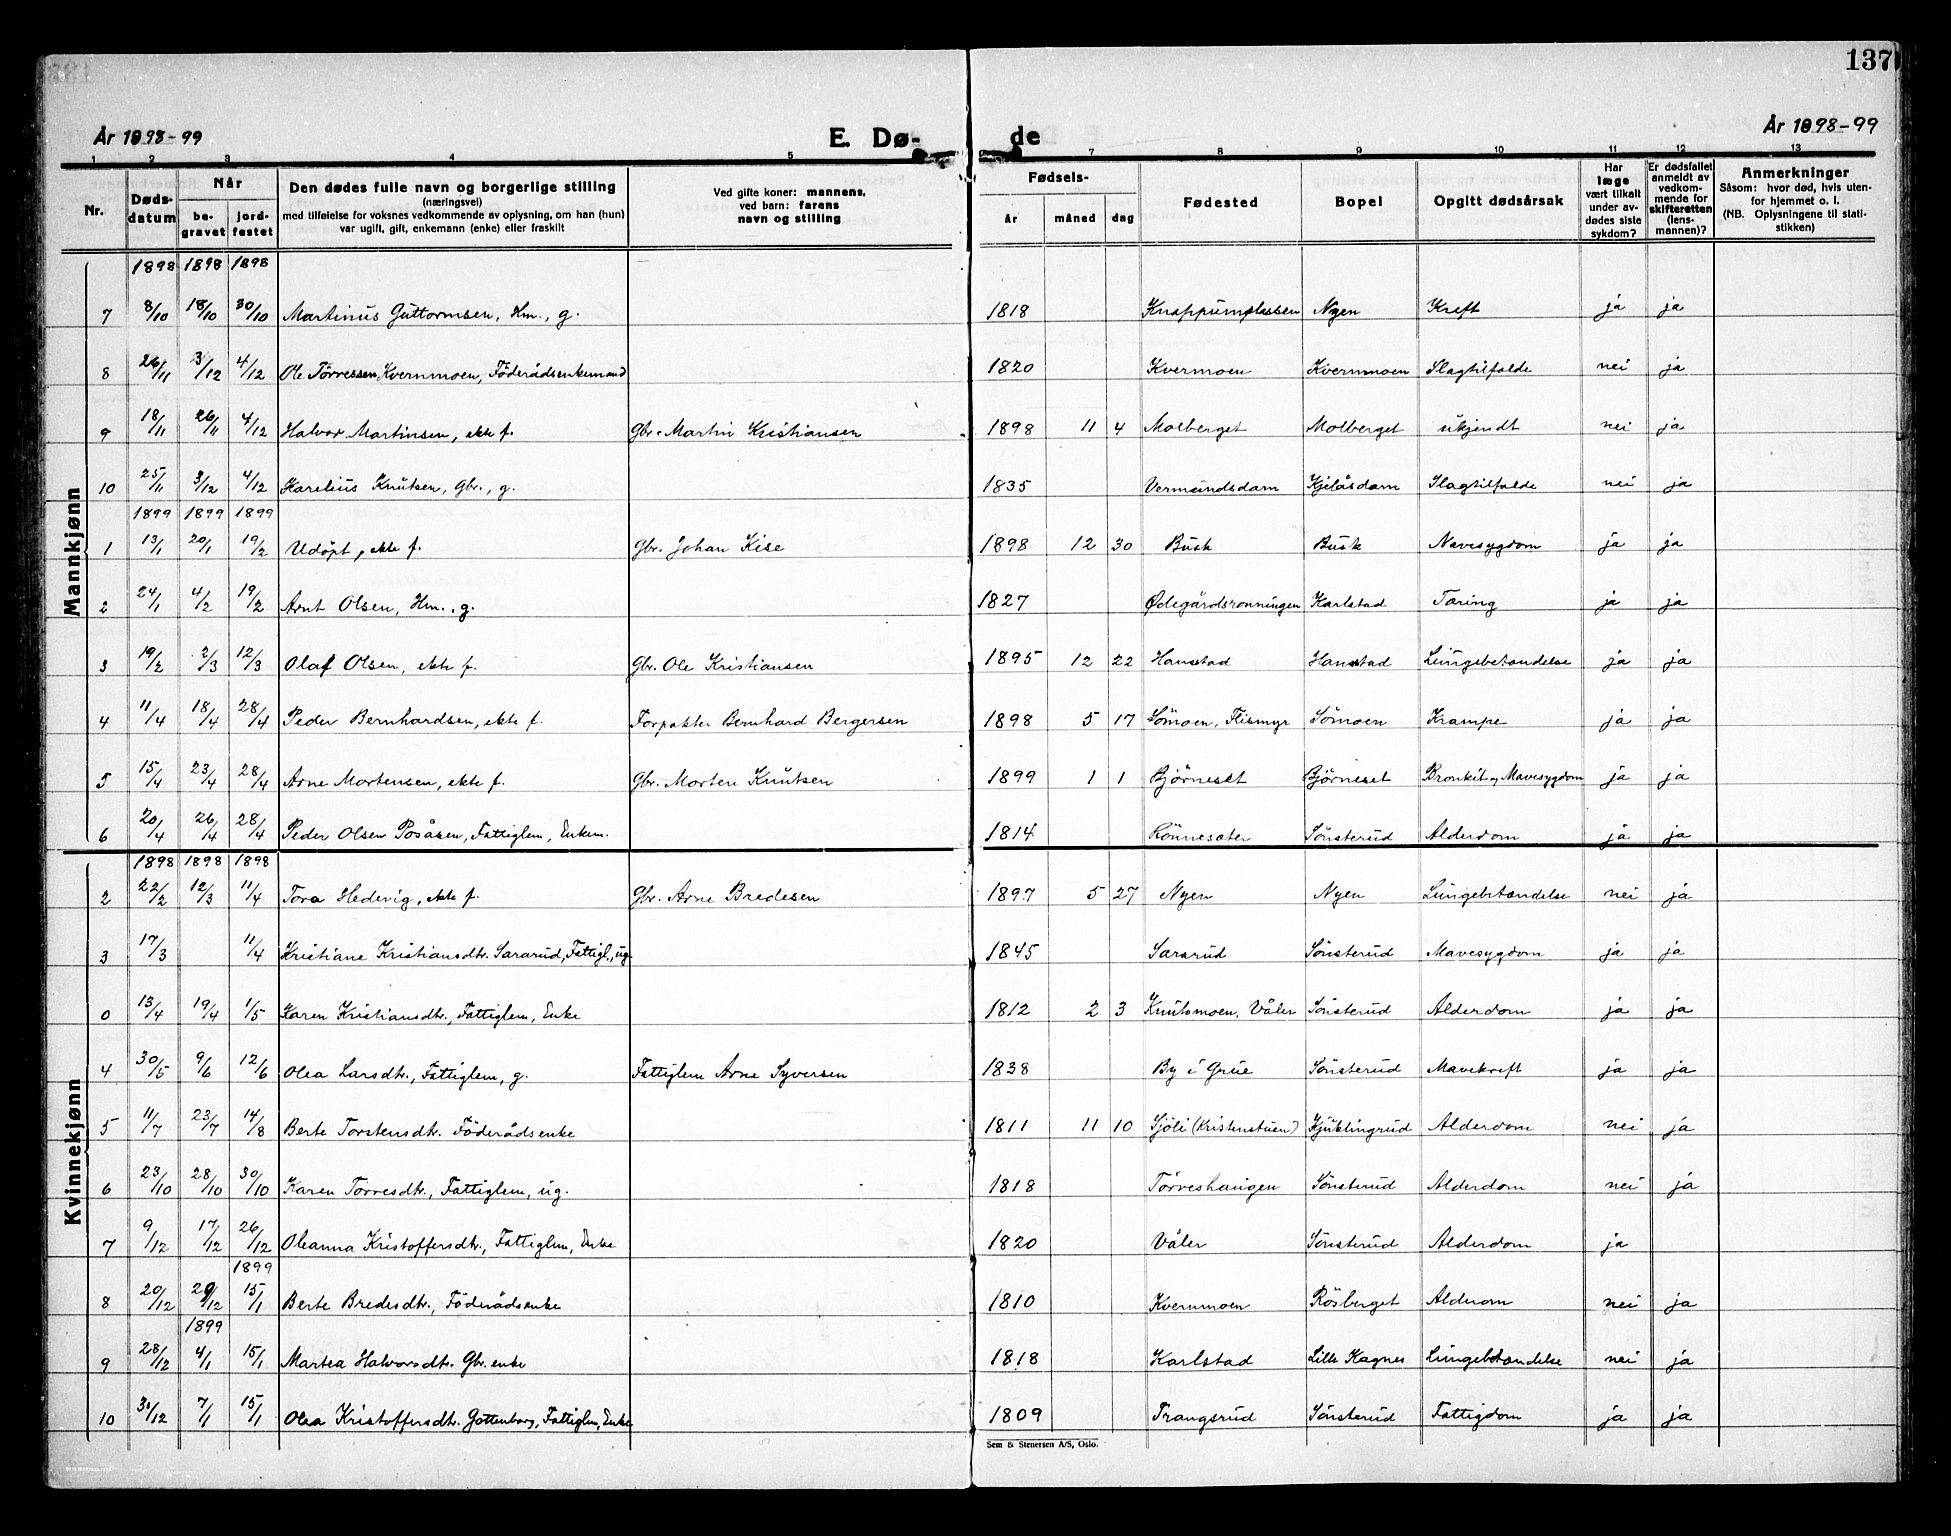 137
År 1898-99
E. Dø-
de
År 1898-99
1 2 3 4 5 7 8 9 10 11 12 13
Nr. Døds-datum Når be-gravet jord-festet Den dødes fulle navn og borgerlige stilling (næringsvei) med tilføielse for voksnes vedkommende av oplysning, om han (hun) var ugift, gift, enkemann (enke) eller fraskilt Ved gifte koner: mannens, ved barn: farens navn og stilling Fødsels- år måned dag Fødested Bopel Opgitt dødsårsak Har læge vært tilkalt under av-dødes siste sykdom? Er dødsfallet anmeldt av vedkom-mende for skifteretten (lens-mannen)? Anmerkninger Såsom: hvor død, hvis uten-for hjemmet o. l. (NB. Oplysningene til stati-stikken)
Mannkjønn
1898 1898 1898
7 8/10 18/10 30/10 Martinus Guttormsen, Hm., g. 1818 Knappumplassen Nyen Kreft ja ja
8 26/11 3/12 4/12 Ole Törressen Kvernmoen, Föderådsenkemand 1820 Kvermoen Kvernmoen Slagtilfalde nei ja
9 18/11 26/11 4/12 Halvor Martinsen, ekte f. Gbr. Martin Kristiansen 1898 11 4 Molberget Molberget ukjendt nei ja
10 25/11 3/12 4/12 Karelius Knutsen, Gbr., g. 1835 Vermundsdam Kjelåsdam Slagtilfalde nei ja
1899 1899 1899
1 13/1 20/1 19/2 Udöpt, ekte f. Gbr. Johan Kise 1898 12 30 Busk Busk Navesygdom ja ja
2 24/1 4/2 19/2 Arnt Olsen, Hm., g. 1827 Ødegårdsrönningen Karlstad Taring ja ja
3 19/2 2/3 12/3 Olaf Olsen, ekte f. Gbr. Ole Kristiansen 1895 12 22 Hanstad Hanstad Lungebetandelse ja ja
4 11/4 18/4 28/4 Peder Bernhardsen, ekte f. Forpakter Bernhard Bergersen 1898 5 17 Sömoen, Flismyr Sömoen Krampe ja ja
5 15/4 23/4 28/4 Arne Mortensen, ekte f. Gbr. Morten Knutsen 1899 1 1 Björneset Björneset Bronkit og Mavesygdom ja ja
6 20/4 26/4 28/4 Peder Olsen Posåsen, Fattiglem, Enkem. 1814 Rönnesater Sönsterud Alderdom ja ja
Kvinnekjønn
1898 1898 1898
2 22/2 12/3 11/4 Tora Hedevig, ekte f. Gbr. Arne Bredesen 1897 5 27 Nyen Nyen Lungebetandelse nei ja
3 17/3 11/4 Kristiane Kristiansdtr. Sararud, Fattigl., ug. 1845 Sararud Sönsterud Mavesygdom ja ja
0 13/4 19/4 1/5 Karen Kristiansdtr., Fattiglem, Enke 1812 2 3 Knutsmoen, Våler Sönsterud Alderdom ja ja
4 30/5 9/6 12/6 Olea Larsdtr., Fattiglem, g. Fattiglem Arne Syversen 1838 By i Grue Sönsterud Mavekreft ja ja
5 11/7 23/7 14/8 Berte Torstensdtr. Föderådsenke 1811 11 10 Sjöli (Kristenstuen) Kjuklingrud Alderdom nei ja
6 23/10 28/10 30/10 Karen Torresdtr., Fattiglem, ug. 1818 Törreshaugen Sönsterud Alderdom nei ja
7 9/12 17/12 26/12 Oleanna Kristoffersdtr., Fattiglem, Enke 1820 Våler Sönsterud Alderdom ja
1899
8 20/12 29/12 15/1 Berte Bredesdtr., Föderådsenke 1810 Kvernmoen Rösberget Alderom nei ja
1899
9 28/12 4/1 15/1 Martea Halvorsdtr. Gbr. enke 1818 Karlstad Lille Hagnes Lungebetandelse nei ja
10 31/12 7/1 15/1 Olea Kristoffersdtr. Gottenborg, Fattiglem, Enke 1809 Trangsrud Sönsterud Fattigdom ja ja
Sem & Stenersen A/S, Oslo.